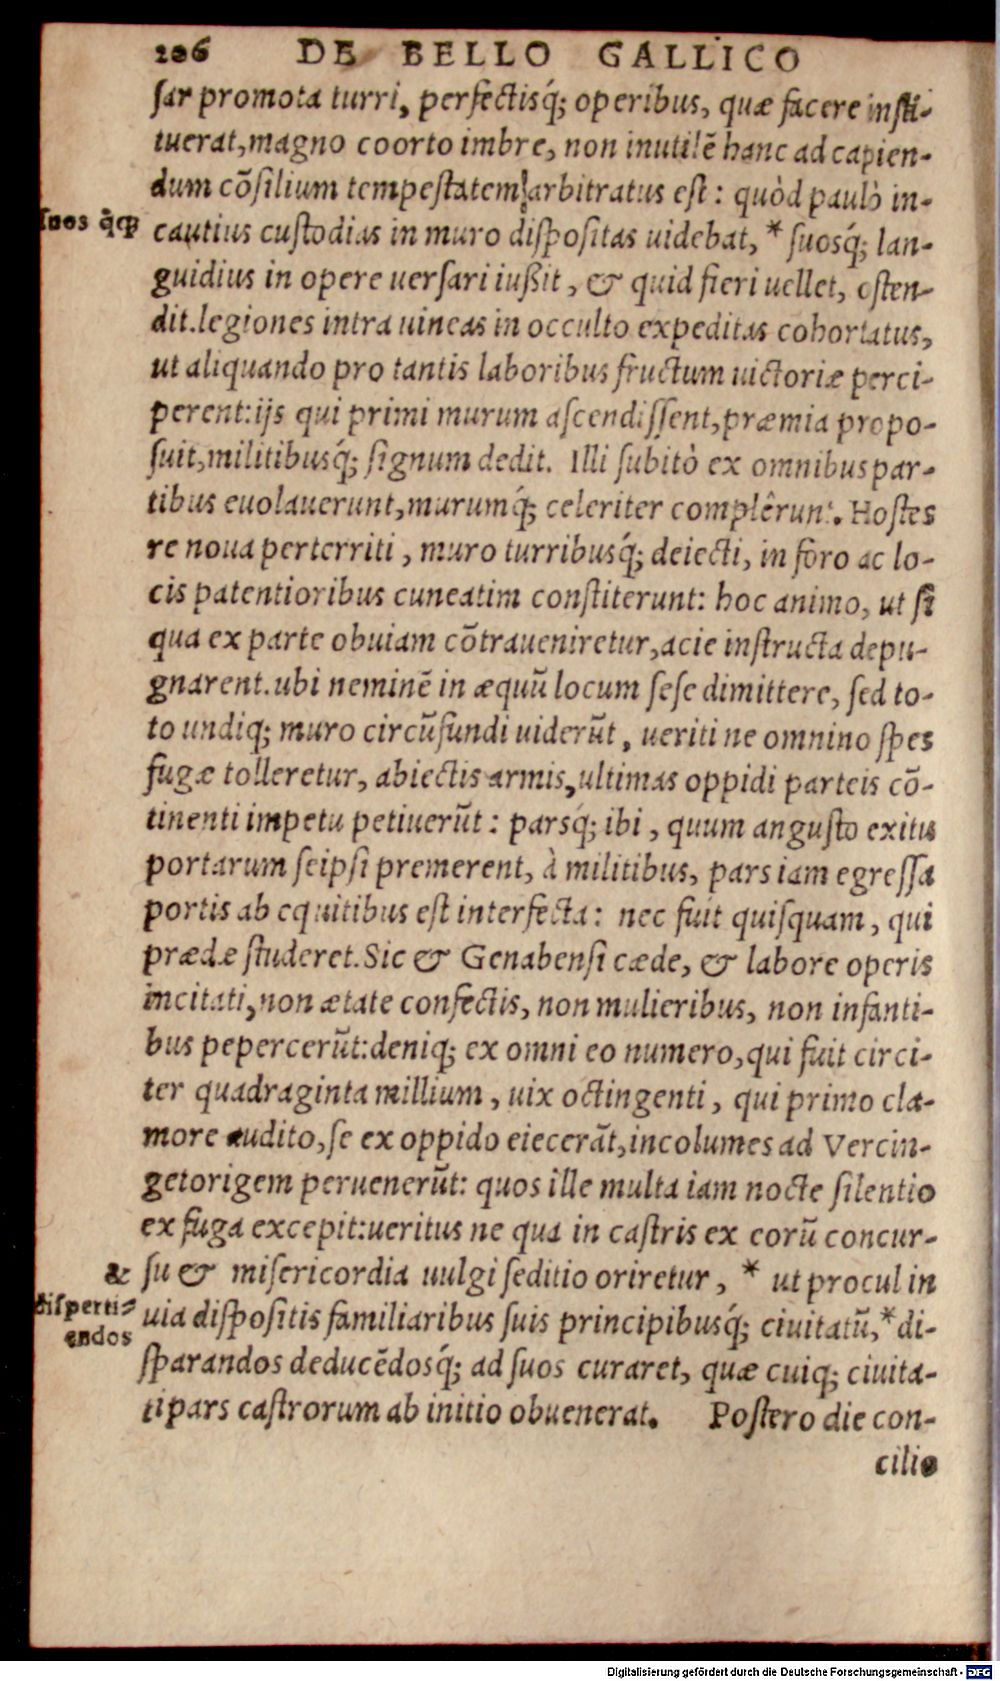 206 DE BELLO GALLICO
ſar promota turri, perfectisq́; operibus, quæ facere inſti-
tuerat, magno coorto imbre, non inutilẽ hanc ad capien-
dum cõſilium tempeſtatem arbitratus eſt: quòd paulò in-
ſuos q̀q;
cautius cuſtodias in muro diſpoſitas uidebat, * ſuosq́; lan-
guidius in opere uerſari iußit, & quid fieri uellet, oſten-
dit. legiones intra uineas in occulto expeditas cohortatus,
ut aliquando pro tantis laboribus fructum uictoriæ perci-
perent: ijs qui primi murum aſcendiſſent, præmia propo-
ſuit, militibusq́; ſignum dedit. Illi ſubitò ex omnibus par-
tibus euolauerunt, murumq́; celeriter complêrunt. Hoſtes
re noua perterriti, muro turribusq́; deiecti, in foro ac lo-
cis patentioribus cuneatim conſtiterunt: hoc animo, ut ſi
qua ex parte obuiam cõtraueniretur, acie inſtructa depu-
gnarent. ubi neminẽ in æquũ locum ſeſe dimittere, ſed to-
to undiq; muro circũfundi uiderũt, ueriti ne omnino ſpes
fugæ tolleretur, abiectis armis, ultimas oppidi parteis cõ-
tinenti impetu petiuerũt: parsq́; ibi, quum anguſto exitu
portarum ſeipſi premerent, à militibus, pars iam egreſſa
portis ab equitibus eſt interfecta: nec fuit quiſquam, qui
prædæ ſtuderet. Sic & Genabenſi cæde, & labore operis
incitati, non ætate confectis, non mulieribus, non infanti-
bus pepercerũt: deniq; ex omni eo numero, qui fuit circi-
ter quadraginta millium, uix octingenti, qui primo cla-
more audito, ſe ex oppido eiecerãt, incolumes ad Vercin-
getorigem peruenerũt: quos ille multa iam nocte ſilentio
ex fuga excepit: ueritus ne qua in caſtris ex eorũ concur-
& ſu & miſericordia uulgi ſeditio oriretur, * ut procul in
diſperti-
endos
uia diſpoſitis familiaribus ſuis principibusq́; ciuitatũ, * di-
ſparandos deducẽdosq́; ad ſuos curaret, quæ cuiq; ciuita-
ti pars caſtrorum ab initio obuenerat. Poſtero die con-
cilio
Digitalisierung gefördert durch die Deutsche Forschungsgemeinschaft - DFG